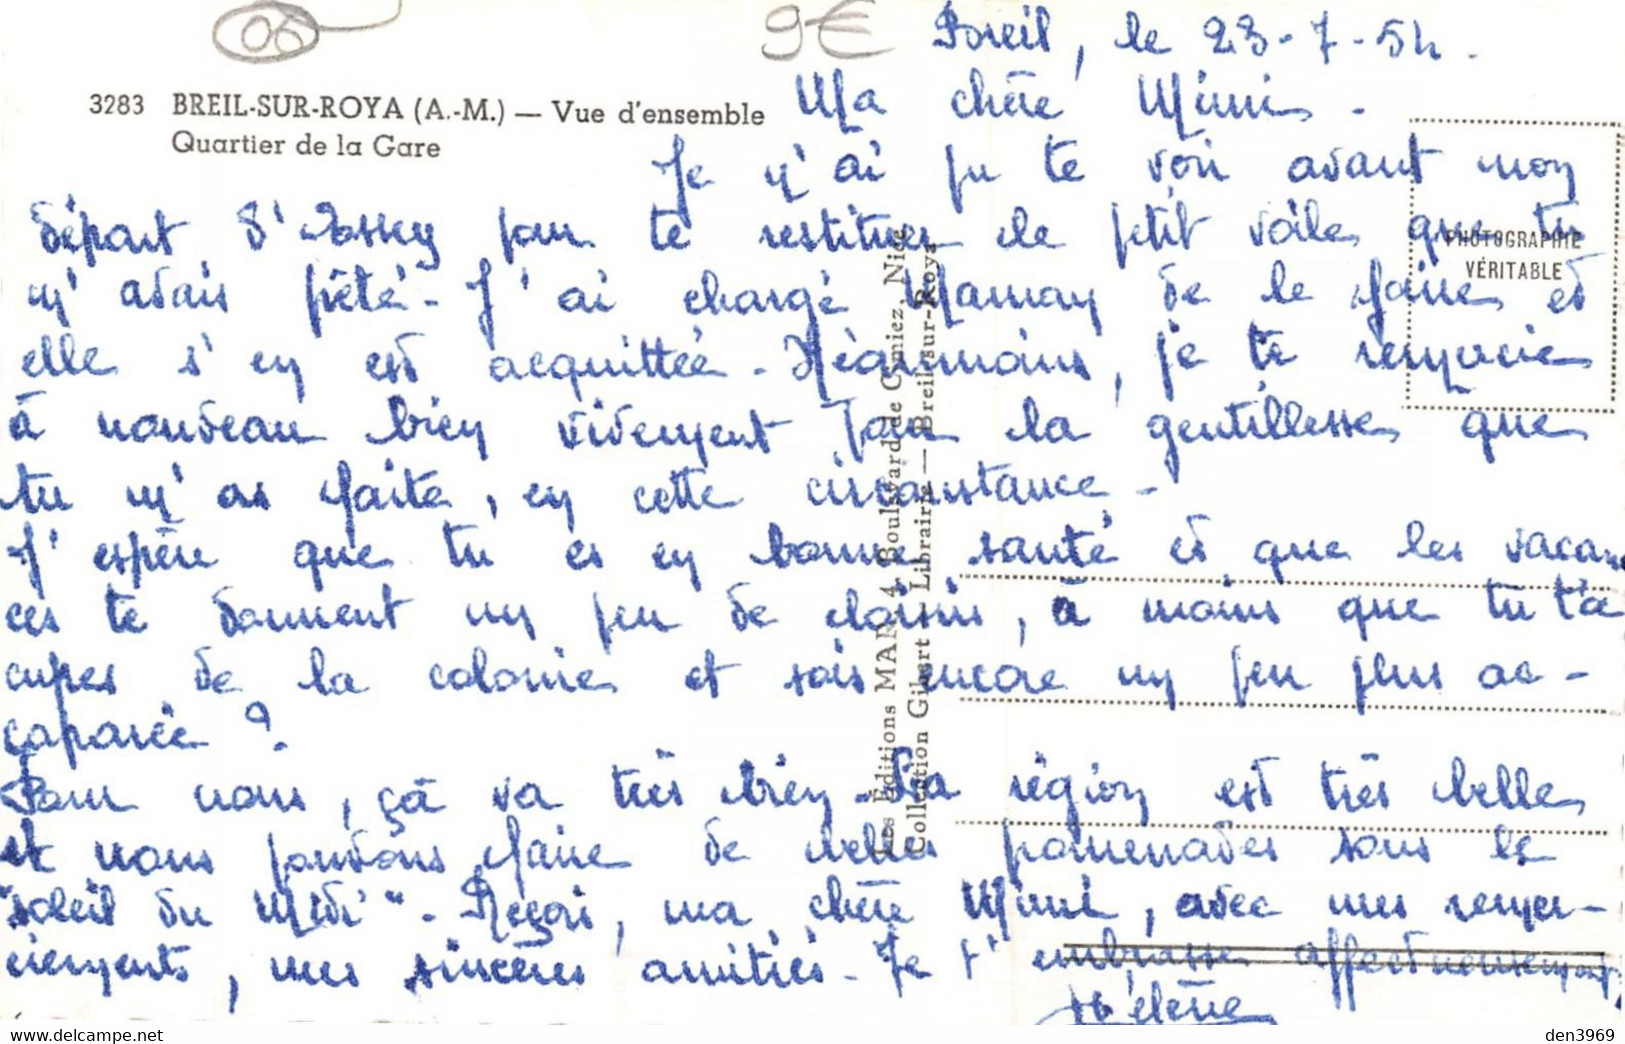 06
9€
Breil, le 23-7-54.
3283 BREIL-SUR-ROYA (A.-M.) — Vue d'ensemble
Quartier de la Gare
Ma chère Mimi.
Je n'ai pu te voir avant mon
départ d' pour te restituer le petit voile que tu
m'avais prêté. J'ai chargé Maman de le faire et
elle s'en est acquittée. Néanmoins, je te remercie
à nouveau bien vivement pour la gentillesse que
tu m'as faite, en cette circonstance.
J'espère que tu es en bonne santé et que les vacan
ces te donnent un peu de loisirs, à moins que tu t'oc
cupes de la colonie et sois encore un peu plus ac-
caparée ?
Pour nous, çà va très bien. La région est très belle
et nous pouvons faire de belles promenades sous le
"soleil du Midi". Reçois, ma chère Mimi, avec mes remer-
ciements, mes sincères amitiés. Je t'embrasse affectueusement
Hélène
PHOTOGRAPHIE
VÉRITABLE
Les Éditions MAR, 4, Boulevard de Cimiez, Nice
Collection Gibert — Librairie — Breil-sur-Roya
https://www.delcampe.net
den3969